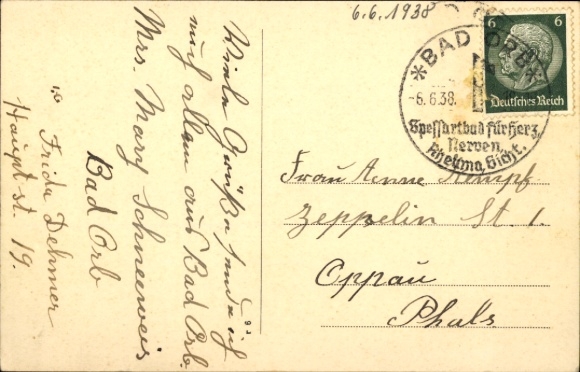 6.6.1938
6 6
Deutsches Reich
*BAD ORB*
-6.6.38.
Spessartbad für Herz,
Nerven,
Rheuma, Gicht.
Viele Grüße sendet
euch allen aus Bad Orb.
Mrs. Mary Schneeweis
Bad Orb
Frida Dehmer
Haupt st. 19.
Frau Anna Kempf
Zeppelin St. 1.
Oppau
Phals.